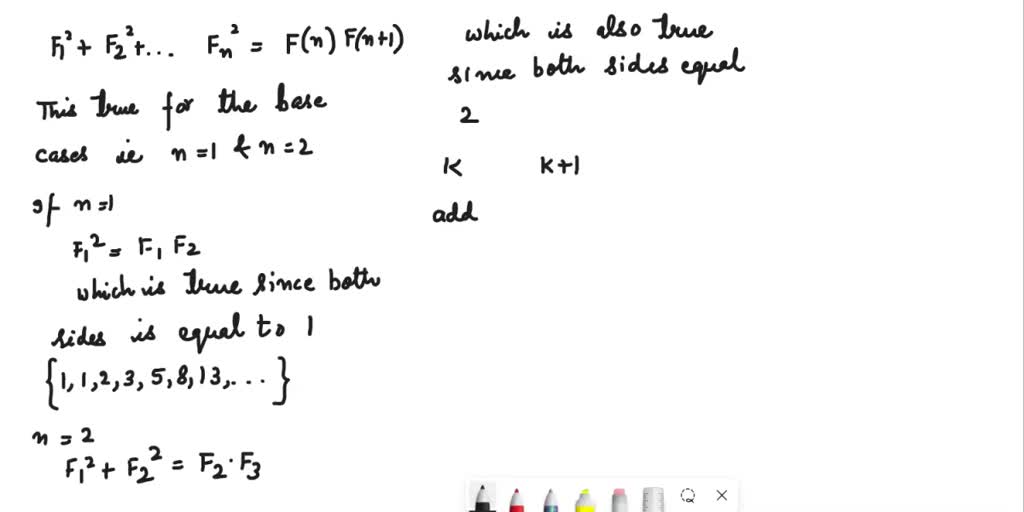 F₁² + F₂² + ... Fₙ² = F(n) F(n+1)
This true for the base
cases ie n=1 & n=2
If n=1
F₁² = F₁ F₂
which is true since both
sides is equal to 1
{1,1,2,3,5,8,13,...}
n = 2
F₁² + F₂² = F₂·F₃
which is also true
since both sides equal
2
K K+1
add